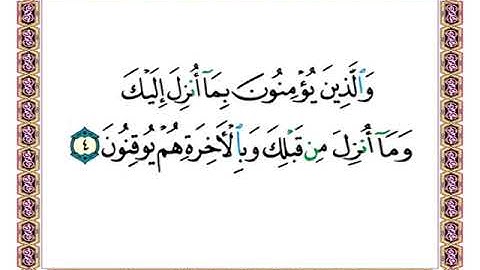 وَٱلَّذِينَ يُؤۡمِنُونَ بِمَآ أُنزِلَ إِلَيۡكَ
وَمَآ أُنزِلَ مِن قَبۡلِكَ وَبِٱلۡأٓخِرَةِ هُمۡ يُوقِنُونَ ٤